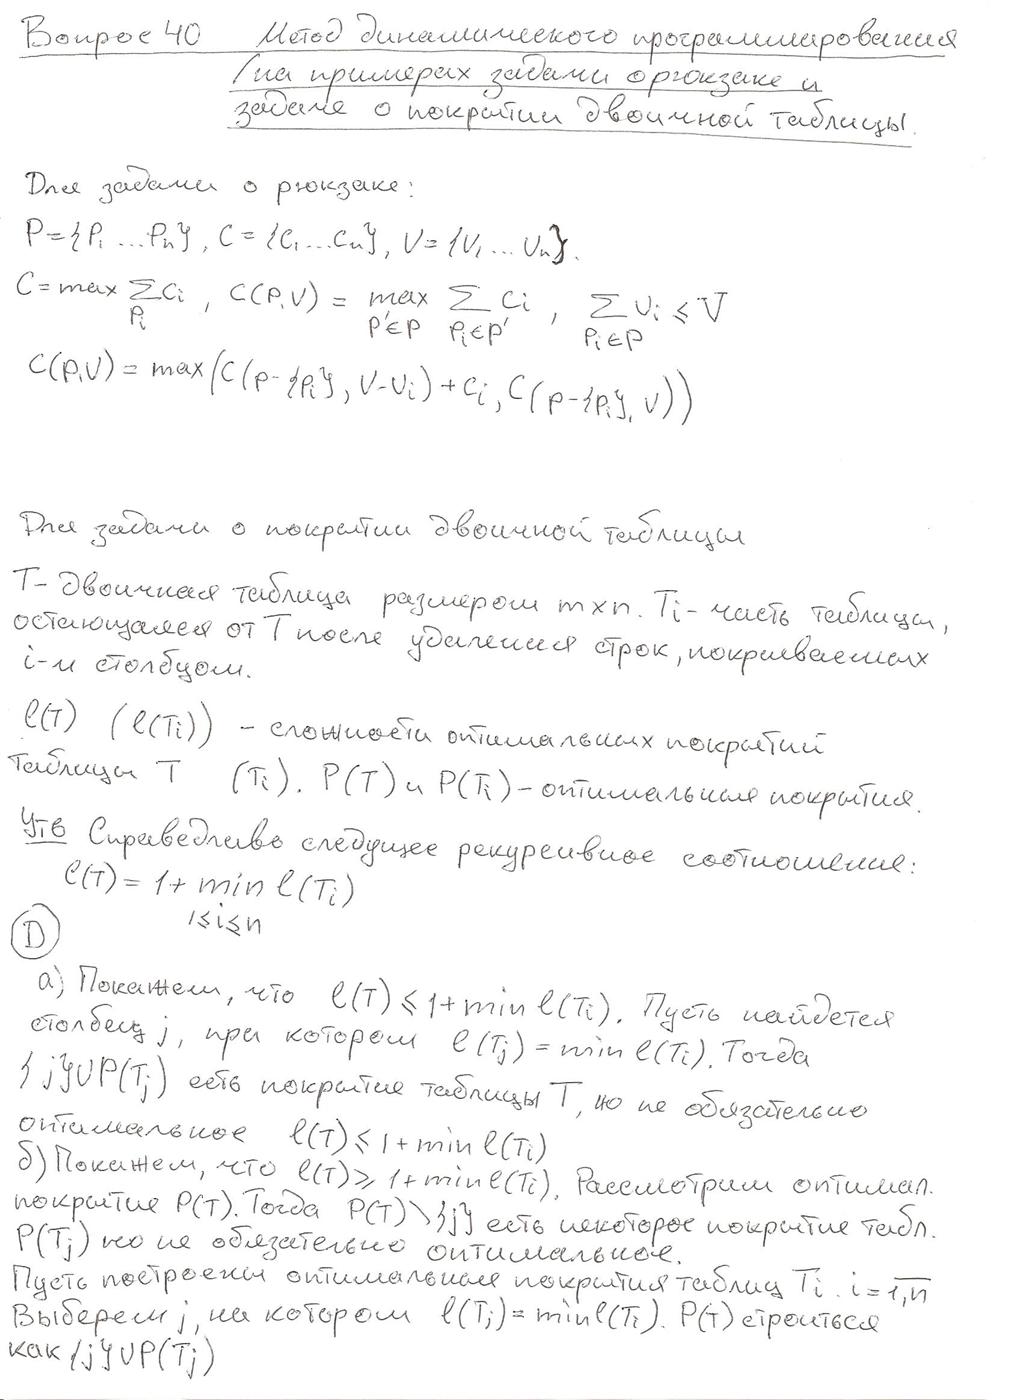 Вопрос 40 Метод динамического программирования
(на примерах задачи о рюкзаке и
задаче о покрытии двоичной таблицы.
Для задачи о рюкзаке:
P={P₁ ...Pₙ}, C={C₁...Cₙ}, V={V₁...Vₙ}.
C=max ∑Cᵢ, C(P,V) = max ∑ Cᵢ, ∑ Vᵢ ≤ V
Pᵢ P'∈P Pᵢ∈P' Pᵢ∈P
C(P,V) = max(C(P-{Pᵢ}, V-Vᵢ)+Cᵢ, C(P-{Pᵢ}, V))
Для задачи о покрытии двоичной таблицы
T- двоичная таблица размером m×n. Tᵢ- часть таблицы,
остающаяся от T после удаления строк, покрываемых
i-м столбцом.
l(T) (l(Tᵢ)) - сложности оптимальных покрытий
таблицы T (Tᵢ). P(T) и P(Tᵢ)-оптимальные покрытия.
Утв Справедливо следущее рекурсивное соотношение:
l(T) = 1+ min l(Tᵢ)
1≤i≤n
D
а) Покажем, что l(T) ≤ 1+min l(Tᵢ). Пусть найдется
столбец j, при котором l(Tⱼ) = min l(Tᵢ). Тогда
{j}UP(Tⱼ) есть покрытие таблицы T, но не обязательно
оптимальное l(T) ≤ 1+min l(Tᵢ)
б) Покажем, что l(T) ≥ 1+min l(Tᵢ). Рассмотрим оптимал.
покрытие P(T). Тогда P(T)\{j} есть некоторое покрытие табл.
P(Tⱼ) но не обязательно оптимальное.
Пусть построены оптимальные покрытия таблиц Tᵢ. i=1,n
Выберем j, на котором l(Tⱼ)=min l(Tᵢ). P(T) строиться
как {j}UP(Tⱼ)